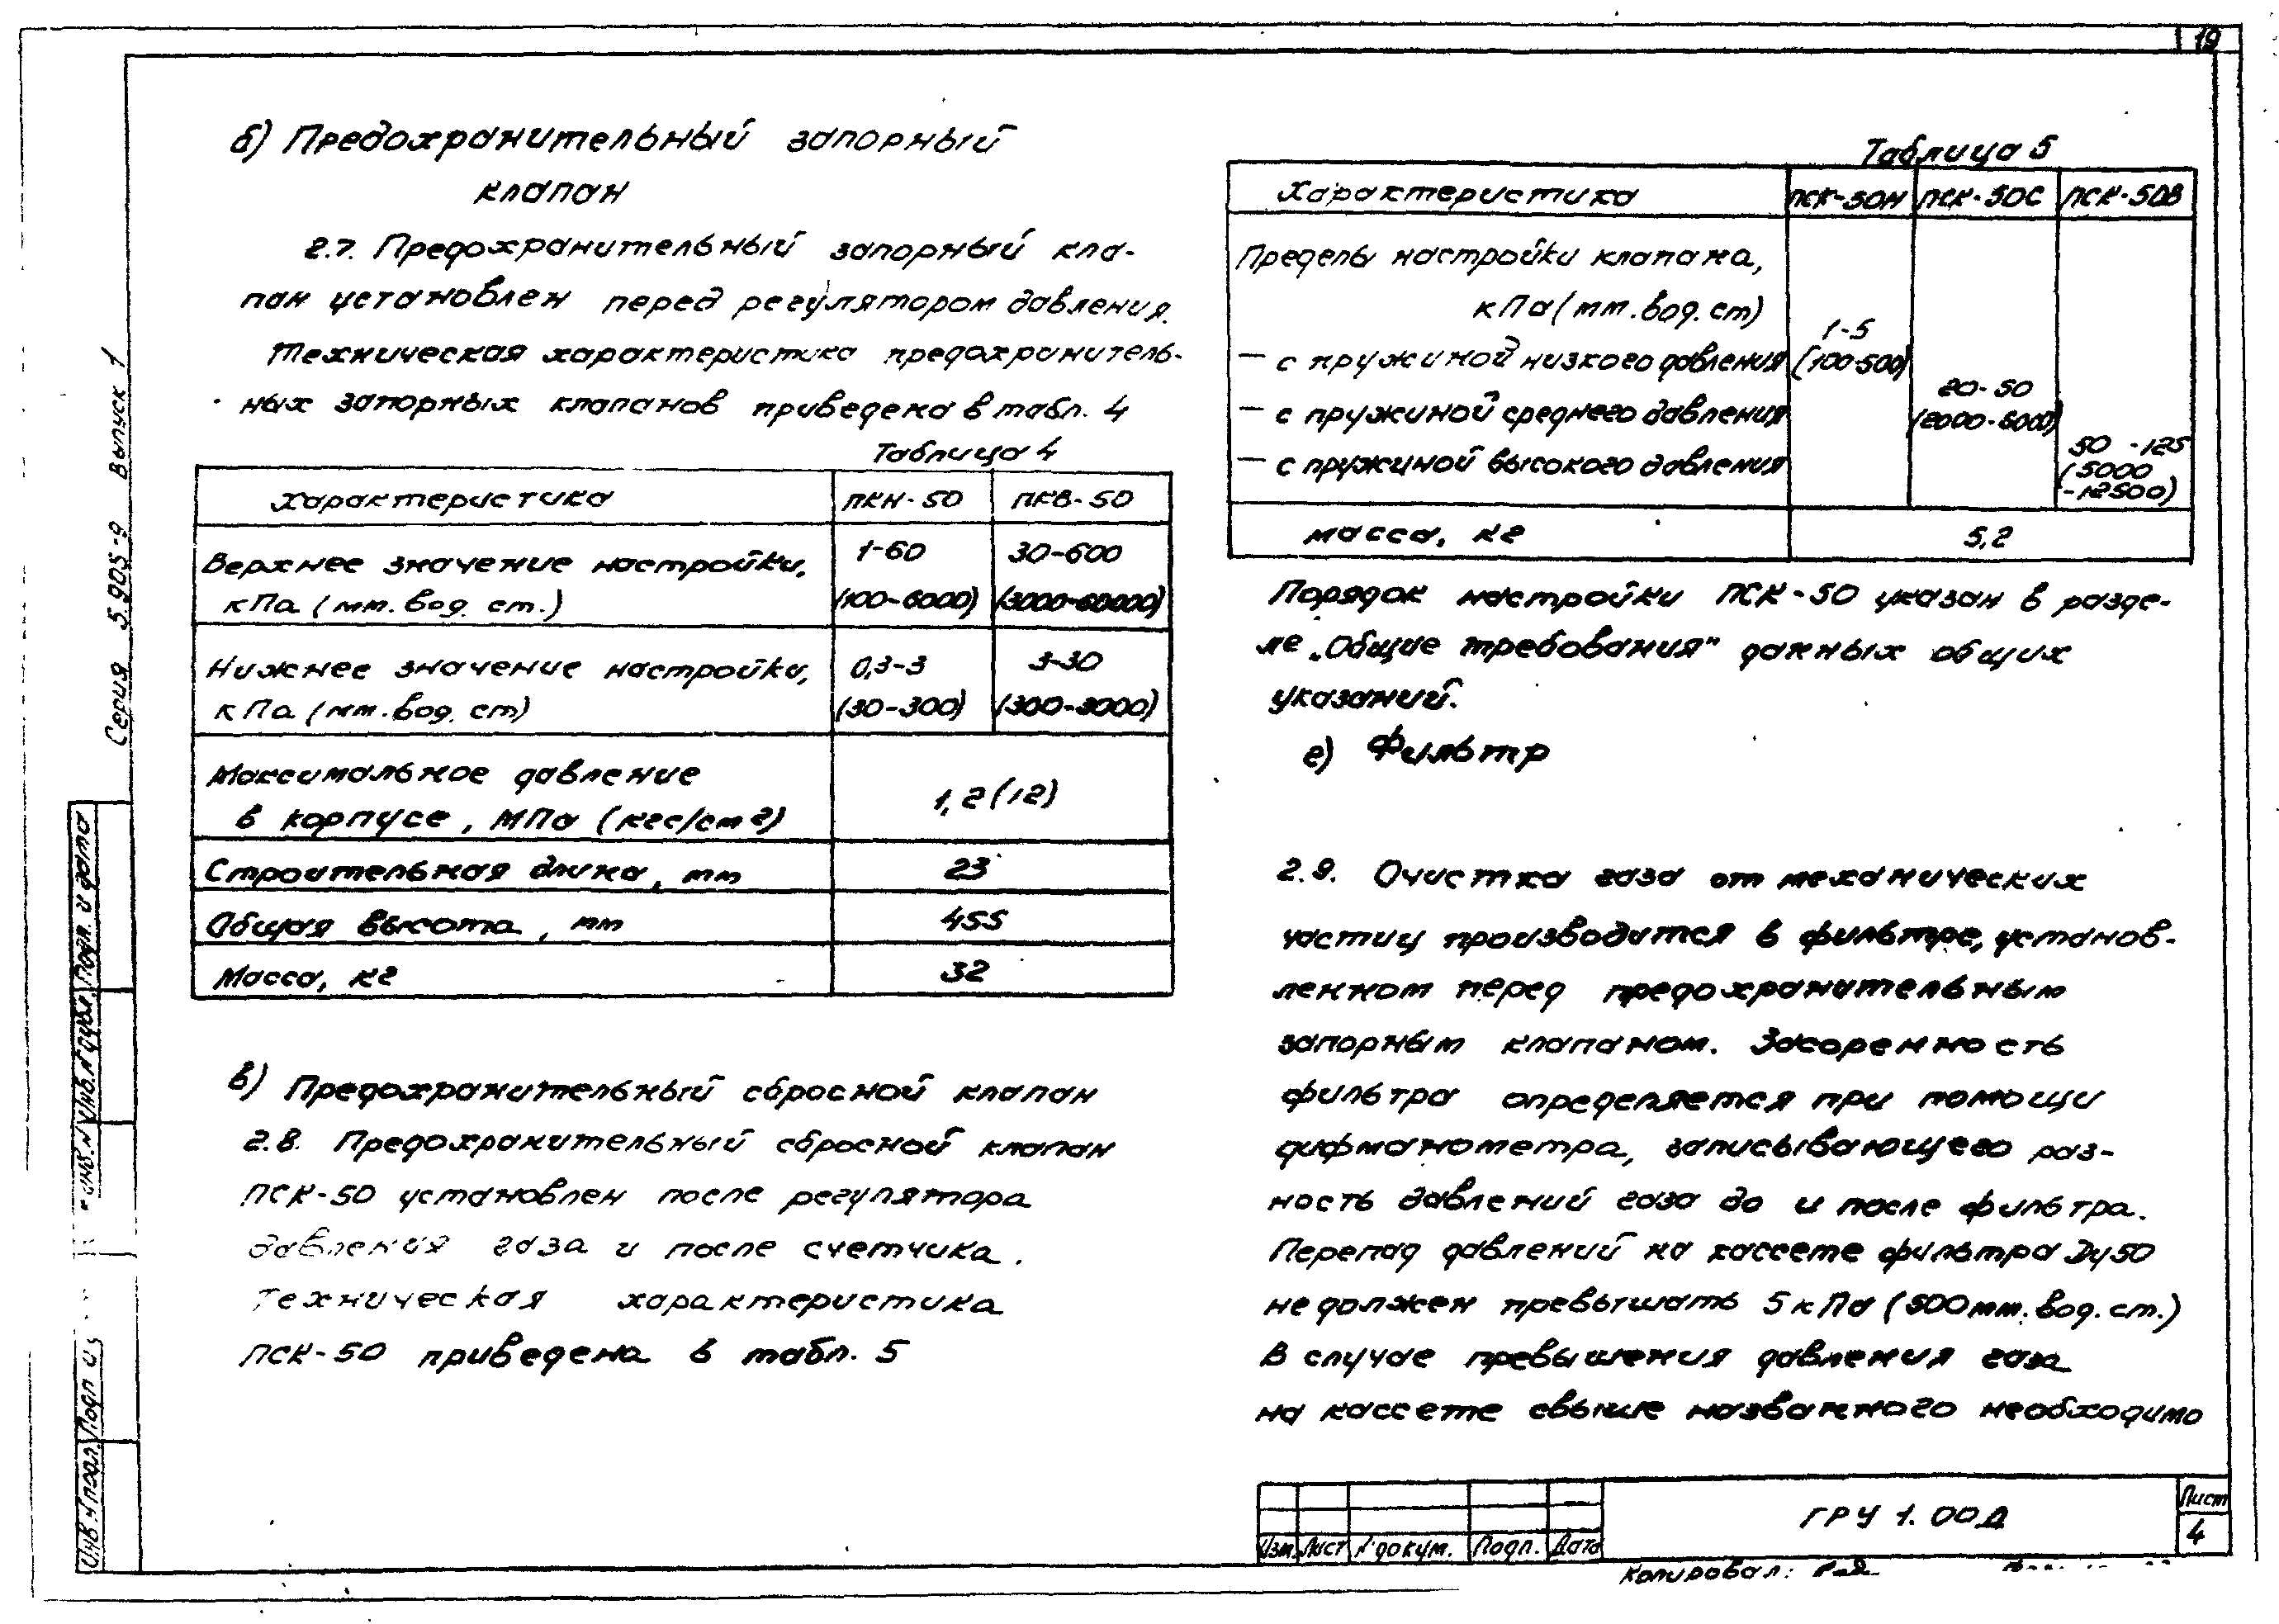 19
Серия 5.905-9 Выпуск 1
б) Предохранительный запорный
клапан
2.7. Предохранительный запорный кла-
пан установлен перед регулятором давления.
Техническая характеристика предохранитель-
ных запорных клапанов приведена в табл. 4
Таблица 4
Характеристика ПКН-50 ПКВ-50
Верхнее значение настройки, 1-60 30-600
кПа (мм. вод. ст.) (100-6000) (3000-60000)
Нижнее значение настройки, 0,3-3 3-30
кПа (мм. вод. ст) (30-300) (300-3000)
Максимальное давление
в корпусе, МПа (кгс/см2) 1,2 (12)
Строительная длина, мм 23
Общая высота, мм 455
Масса, кг 32
в) Предохранительный сбросной клапан
2.8. Предохранительный сбросной клапан
ПСК-50 установлен после регулятора
давления газа и после счетчика.
Техническая характеристика
ПСК-50 приведена в табл. 5
Таблица 5
Характеристика ПСК-50Н ПСК-50С ПСК-50В
Пределы настройки клапана,
кПа (мм. вод. ст)
1-5
— с пружиной низкого давления (100-500)
20-50
— с пружиной среднего давления (2000-6000)
50-125
— с пружиной высокого давления (5000
-12500)
масса, кг 5,2
Порядок настройки ПСК-50 указан в разде-
ле „Общие требования" данных общих
указаний.
е) Фильтр
2.9. Очистка газа от механических
частиц производится в фильтре, установ-
ленном перед предохранительным
запорным клапаном. Засоренность
фильтра определяется при помощи
дифманометра, записывающего раз-
ность давлений газа до и после фильтра.
Перепад давлений на кассете фильтра Ду50
не должен превышать 5 кПа (500 мм. вод. ст.)
В случае превышения давления газа
на кассете свыше названного необходимо
Изм. Лист N докум. Подп. Дата
ГРУ 1.00Д
Лист
4
Копировал:
Инв. N подл. Подп и
инв. N Инв. N дубл. Подп. и дата